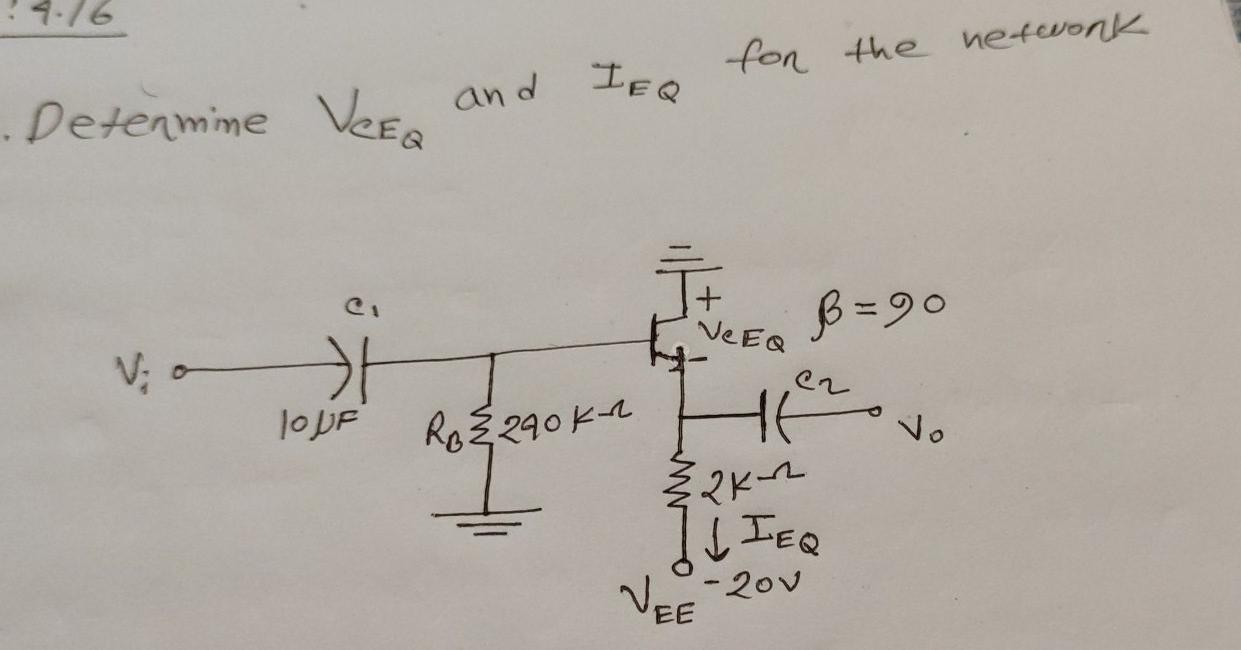 : 4.16
. Determine VCEQ and IEQ for the network
C1
Vi
10μF
RB 240 K-Ω
+
VCEQ
-
β = 90
C2
Vo
2K-Ω
↓ IEQ
VEE -20V